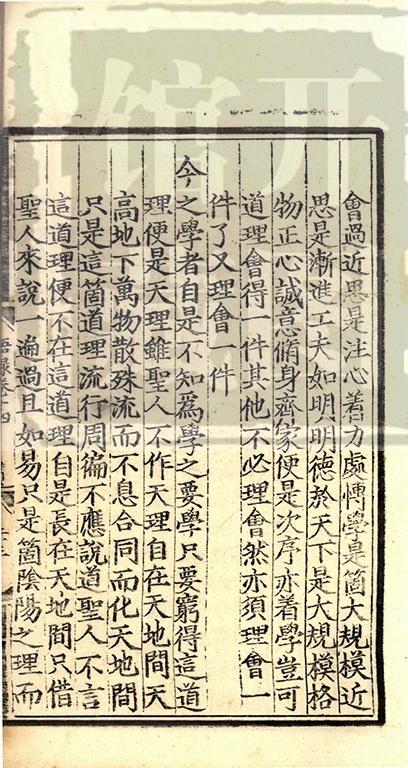 會過近思是注心着力處博學是箇大規模近
思是漸進工夫如明明德於天下是大規模格
物正心誠意脩身齊家便是次序亦着學豈可
道理會得一件其他不必理會然亦須理會一
件了又理會一件
今之學者自是不知爲學之要學只要窮得這道
理便是天理雖聖人不作天理自在天地間天
高地下萬物散殊流而不息合同而化天地間
只是這箇道理流行周徧不應說道聖人不言
這道理便不在這道理自是長在天地間只借
聖人來說一遍過且如易只是箇陰陽之理而
語錄卷十四